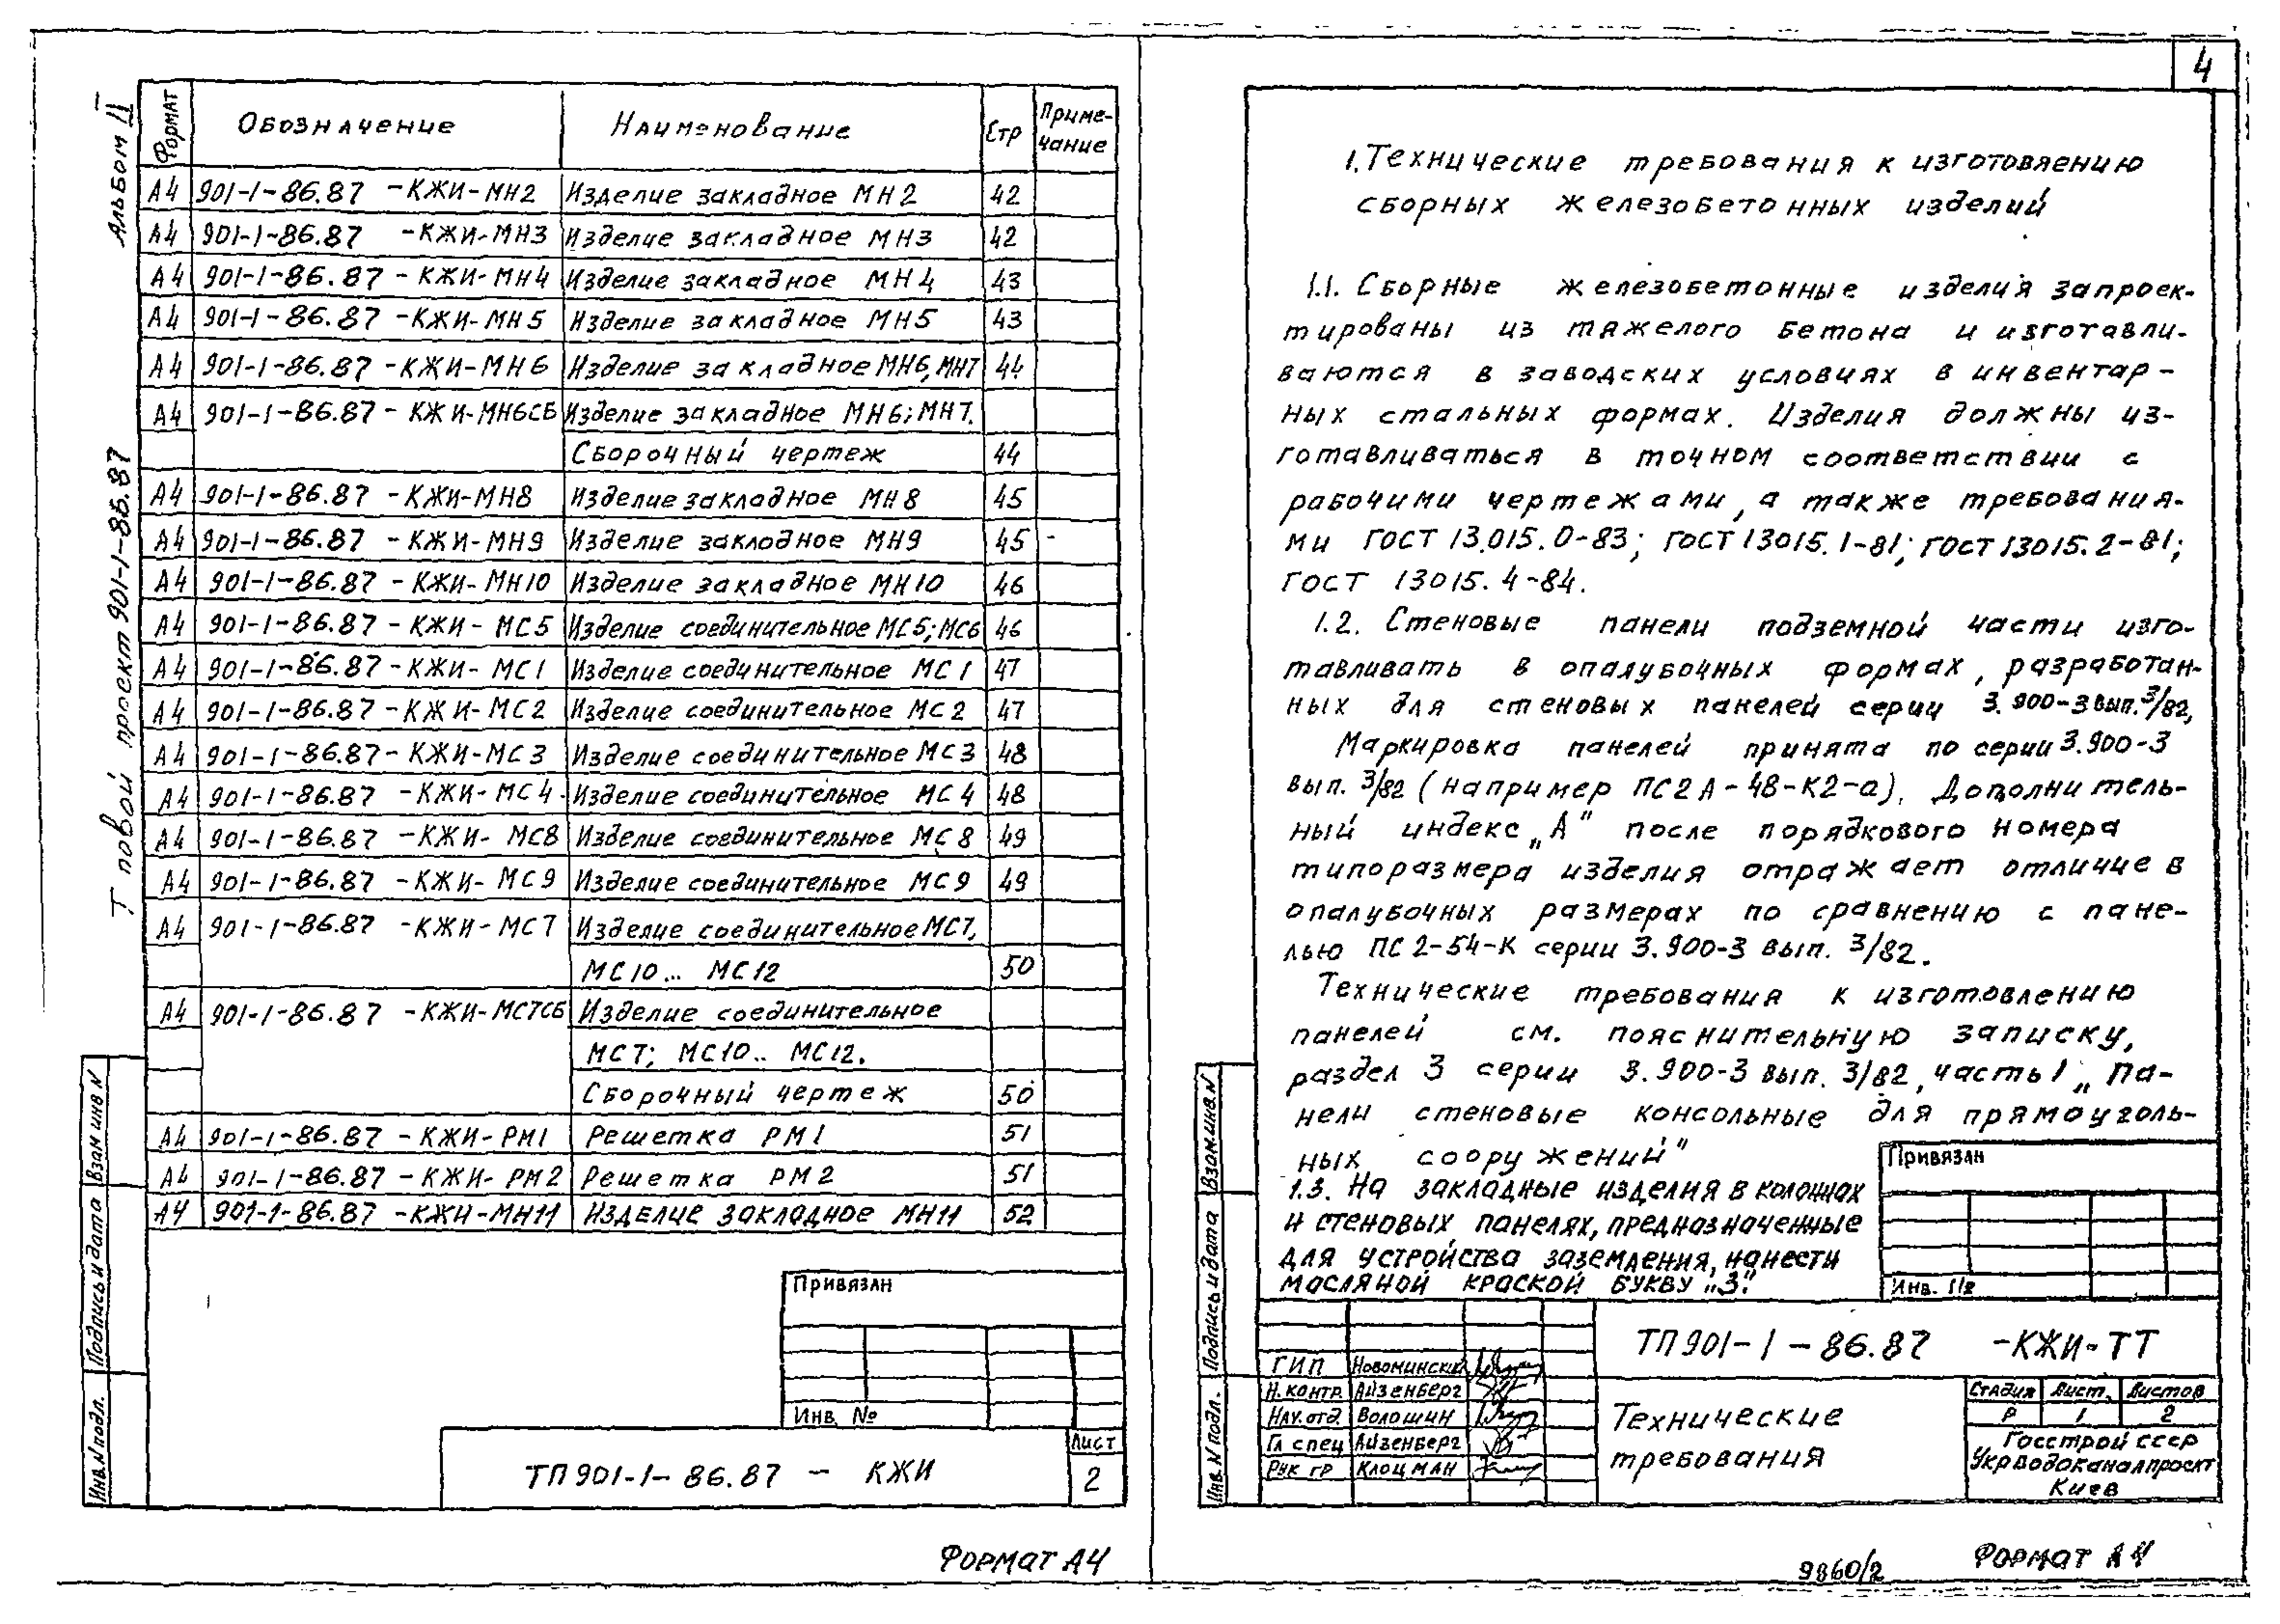 4
Альбом II
Типовой проект 901-1-86.87
Формат Обозначение Наименование Стр Примечание
А4 901-1-86.87 -КЖИ-МН2 Изделие закладное МН2 42
А4 901-1-86.87 -КЖИ-МН3 Изделие закладное МН3 42
А4 901-1-86.87 -КЖИ-МН4 Изделие закладное МН4 43
А4 901-1-86.87 -КЖИ-МН5 Изделие закладное МН5 43
А4 901-1-86.87 -КЖИ-МН6 Изделие закладное МН6, МН7 44
А4 901-1-86.87 - КЖИ-МН6СБ Изделие закладное МН6; МН7.
Сборочный чертеж 44
А4 901-1-86.87 -КЖИ-МН8 Изделие закладное МН8 45
А4 901-1-86.87 -КЖИ-МН9 Изделие закладное МН9 45
А4 901-1-86.87 -КЖИ-МН10 Изделие закладное МН10 46
А4 901-1-86.87 -КЖИ- МС5 Изделие соединительное МС5; МС6 46
А4 901-1-86.87 -КЖИ- МС1 Изделие соединительное МС1 47
А4 901-1-86.87 -КЖИ-МС2 Изделие соединительное МС2 47
А4 901-1-86.87 -КЖИ-МС3 Изделие соединительное МС3 48
А4 901-1-86.87 -КЖИ-МС4 Изделие соединительное МС4 48
А4 901-1-86.87 -КЖИ- МС8 Изделие соединительное МС8 49
А4 901-1-86.87 -КЖИ- МС9 Изделие соединительное МС9 49
А4 901-1-86.87 -КЖИ-МС7 Изделие соединительное МС7,
МС10... МС12 50
А4 901-1-86.87 -КЖИ-МС7СБ Изделие соединительное
МС7; МС10.. МС12.
Сборочный чертеж 50
А4 901-1-86.87 -КЖИ-РМ1 Решетка РМ1 51
А4 901-1-86.87 -КЖИ-РМ2 Решетка РМ2 51
А4 901-1-86.87 -КЖИ-МН11 Изделие закладное МН11 52
Привязан
Инв. №
ТП 901-1-86.87 - КЖИ
Лист
2
Взам инв N
Подпись и дата
Инв. N подл.
Формат А4
1. Технические требования к изготовлению
сборных железобетонных изделий
1.1. Сборные железобетонные изделия запроек-
тированы из тяжелого бетона и изготавли-
ваются в заводских условиях в инвентар-
ных стальных формах. Изделия должны из-
готавливаться в точном соответствии с
рабочими чертежами, а также требования-
ми ГОСТ 13.015.0-83; ГОСТ 13015.1-81; ГОСТ 13015.2-81;
ГОСТ 13015.4-84.
1.2. Стеновые панели подземной части изго-
тавливать в опалубочных формах, разработан-
ных для стеновых панелей серии 3.900-3 вып. 3/82,
Маркировка панелей принята по серии 3.900-3
вып. 3/82 (например ПС2А-48-К2-а). Дополнитель-
ный индекс „А" после порядкового номера
типоразмера изделия отражает отличие в
опалубочных размерах по сравнению с пане-
лью ПС2-54-К серии 3.900-3 вып. 3/82.
Технические требования к изготовлению
панелей см. пояснительную записку,
раздел 3 серии 3.900-3 вып. 3/82, часть 1 „Па-
нели стеновые консольные для прямоуголь-
ных сооружений"
1.3. На закладные изделия в колоннах
и стеновых панелях, предназначенные
для устройства заземления, нанести
масляной краской букву „З".
Привязан
Инв. №
ТП 901-1-86.87 -КЖИ-ТТ
ГИП Новоминский
Н. контр. Айзенберг
Нач. отд. Волошин
Гл спец Айзенберг
Рук гр Клоцман
Технические
требования
Стадия Лист. Листов
Р 1 2
Госстрой СССР
Укрводоканалпроект
Киев
Взам.инв.N
Подпись и дата
Инв. N подл.
9860/2
Формат А4